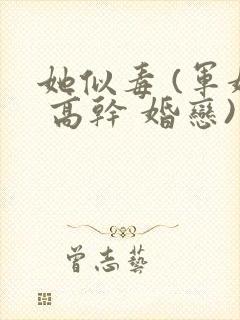 她似毒(軍
高幹 婚戀)
曾志藝